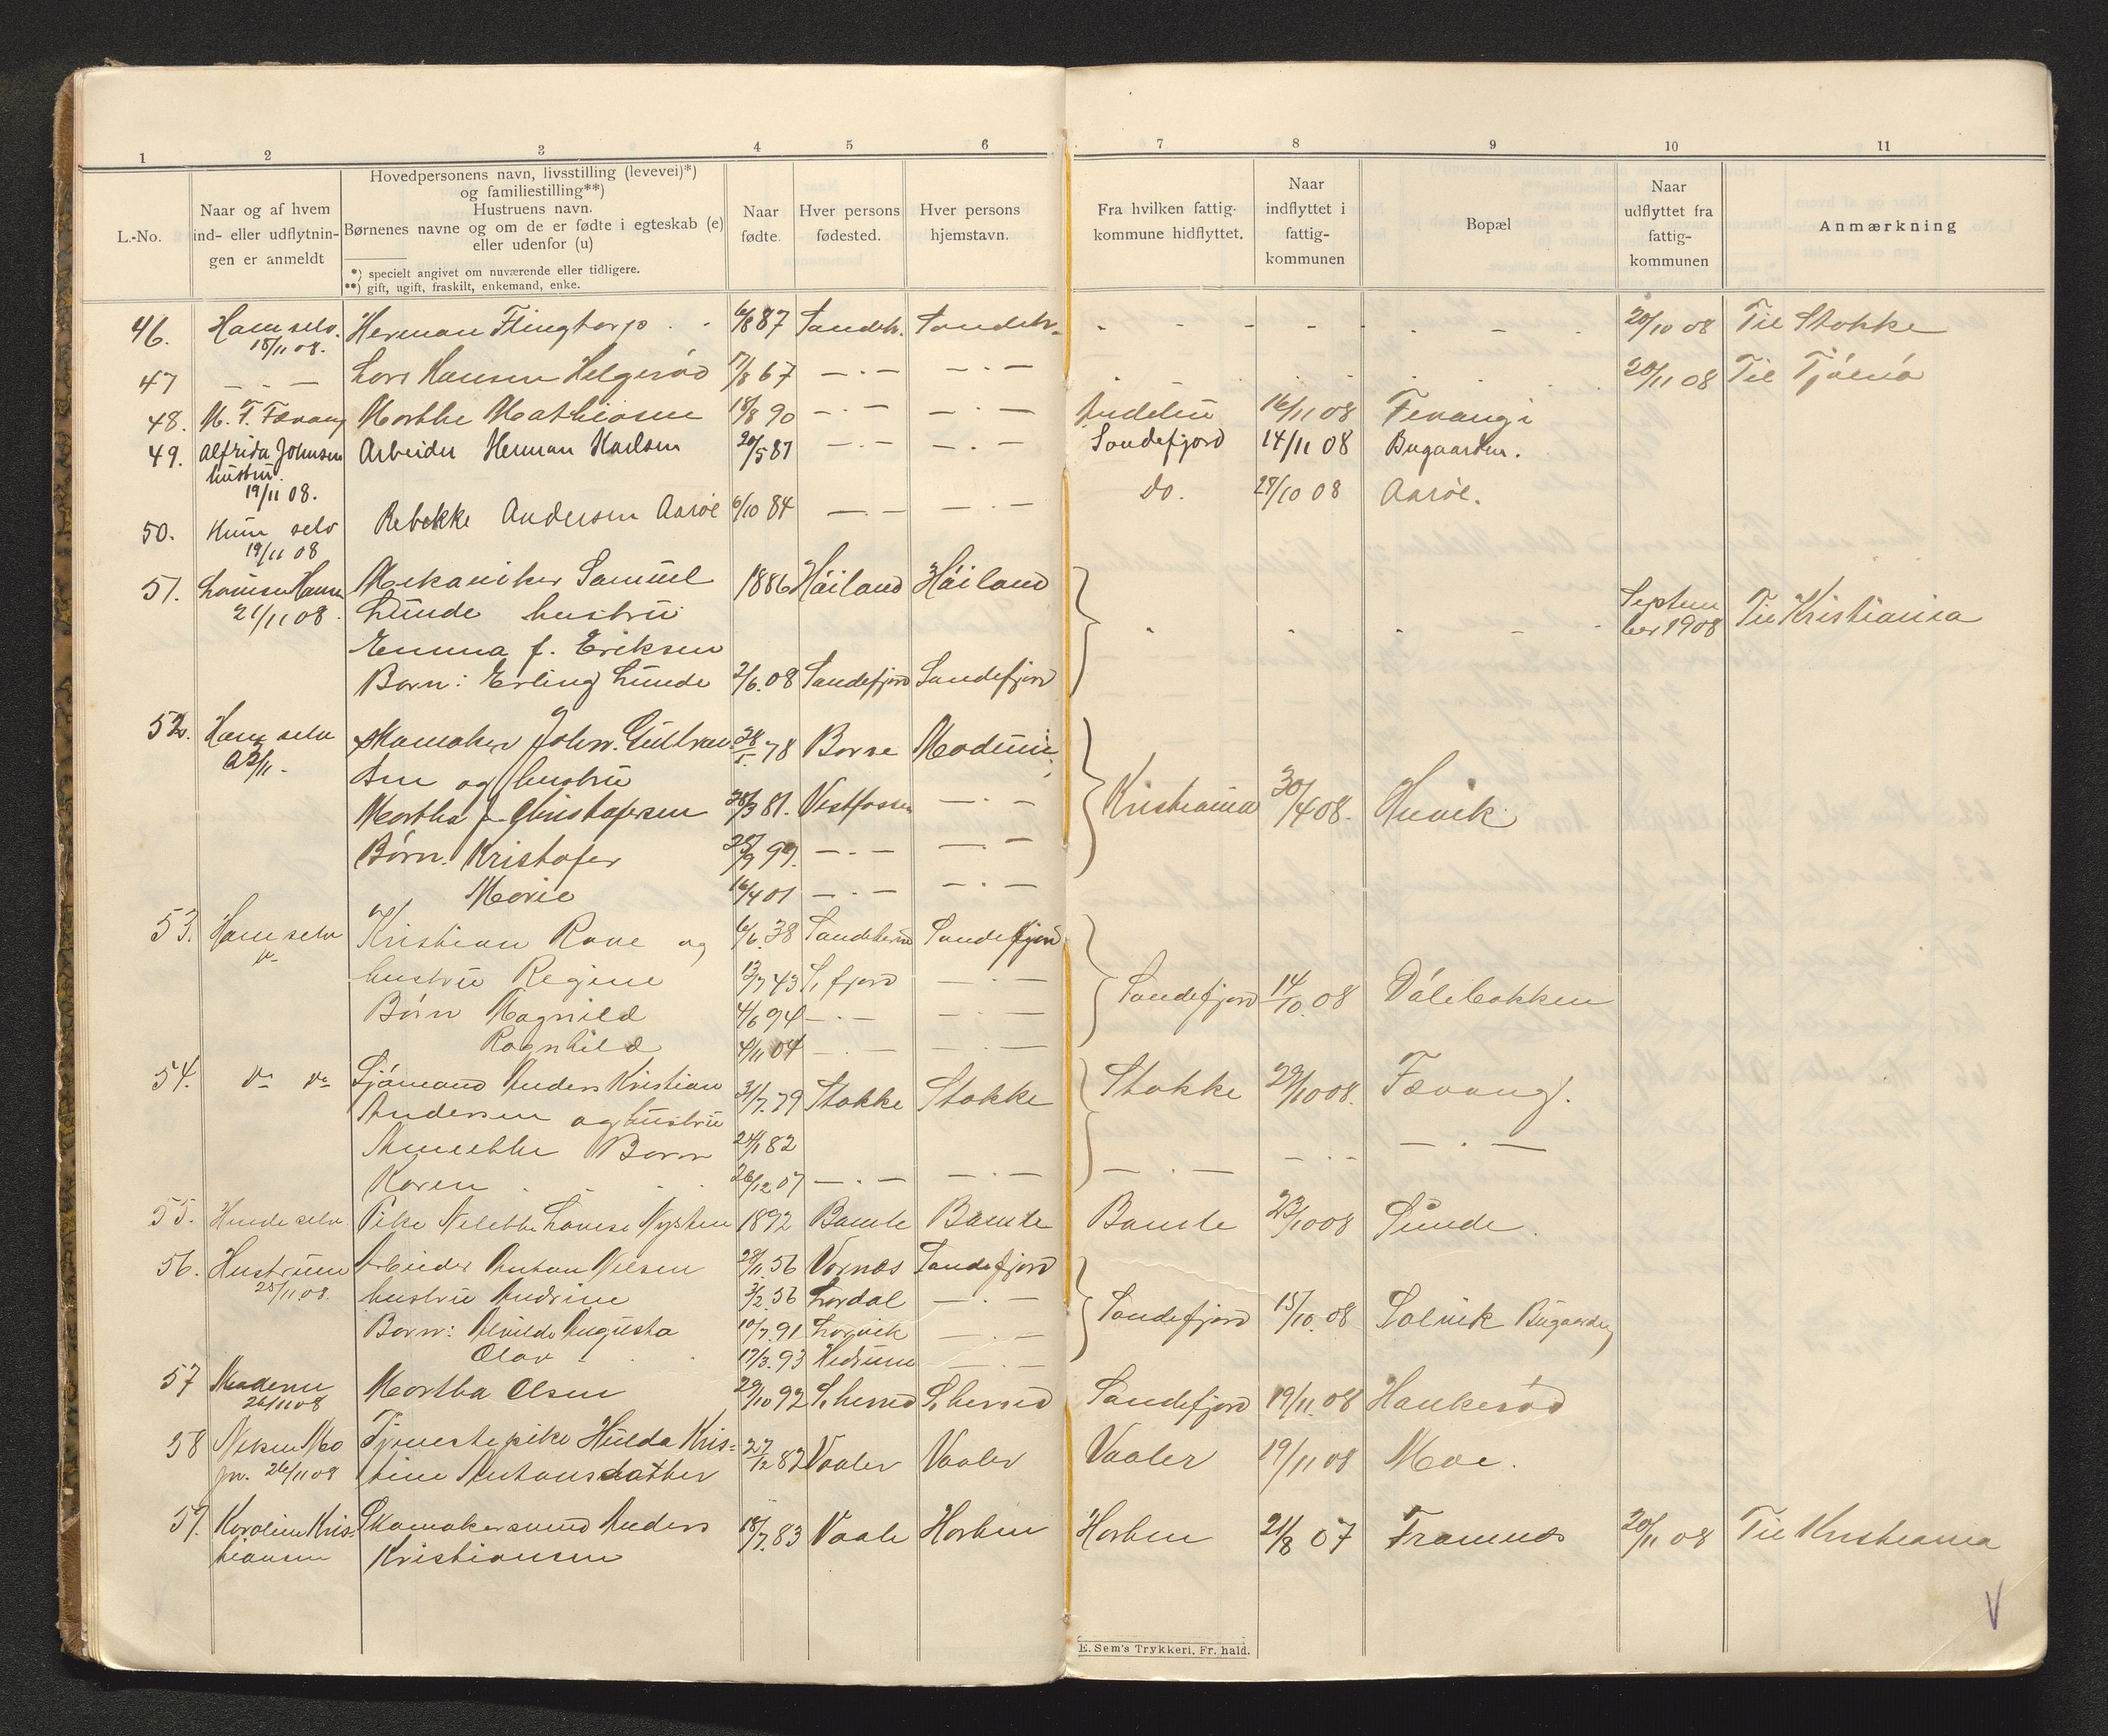 1 2 3 4 5 6 7 8 9 10 11
L.-No.
Naar og af hvem
ind- eller udflytnin-
gen er anmeldt
Hovedpersonens navn, livsstilling (levevei)*)
og familiestilling**)
Hustruens navn.
Børnenes navne og om de er fødte i egteskab (e)
eller udenfor (u)
*) specielt angivet om nuværende eller tidligere.
**) gift, ugift, fraskilt, enkemand, enke.
Naar
fødte.
Hver persons
fødested.
Hver persons
hjemstavn.
Fra hvilken fattig-
kommune hidflyttet.
Naar
indflyttet i
fattig-
kommunen
Bopæl
Naar
udflyttet fra
fattig-
kommunen
Anmærkning
46. Ham selv. Herman Flingtorp 6/8 87 Sandeh. Sandeh. 20/10 08 Til Stokke
18/11 08.
47 — . — Lars Hansen Helgerød 17/8 67 — . — — . — 20/11 08 Til Tjømø
48. M. F. Fævang Marthe Mathiasen 18/8 90 — . — — . — 16/11 08 Fevang
49. Alfrida Johnsen Arbeider Herman Karlsen 20/5 87 — . — — . — Sandefjord 14/11 08 Bugaarden.
hustru.
19/11 08.
50. Hun selv Rebekke Andersen Aarøe 6/10 84 — . — — . — Do. 28/10 08 Aarøe.
19/11 08
51. Louise Hansen Mekaniker Samuel 1886 Høiland Høiland
21/11 08. Lunde hustru Septem
ber 1908 Til Kristiania
Emma f. Eriksen
Barn: Erling Lunde 2/6.08 Sandefjord Sandefjord
52. Ham selv Skomaker Johan Gulbran 78 Borre Modum
sen og hustru
Martha f. Christofersen 81. Vestfossen — . — Kristiania 30/4 08. Huvik
Børn. Kristofer 99. — . — — . —
Marie 16/4 01 — . — — . —
53. Ham selv Kristian Rove og 6/6.38 Sandeherred Sandefjord
hustru Regine 43 S. fjord — . — Sandefjord 14/10 08 Dølebakken
Børn Magnild 4/6 94 — . — — . —
Ragnhild 4/11 04 — . — — . —
54. Do Do Sjømand Anders Kristian 31/7.79 Stokke Stokke Stokke 29/10 08. Fævang.
Andersen og hustru
Annette Barn 24/1 82 — . — — . — — . —
Karen 26/12 07 — . — — . —
55. Hende selv Pike Nelette Lovise Nysten 1892 Bamle Bamle Bamle 23/10 08 Sunde.
56. Hustruen Arbeider Anton Nilsen 28/11.56 Vornes Sandefjord
25/11 08. hustru Andrine 3/2.56 Lardal — . — Sandefjord 15/10.08 Solvik Bugaarden
Barn: Alvilde Augusta 10/7.91 Larvik — . —
Olav 17/3.93 Hedrum — . —
57 Moderen Martha Olsen 29/10 92 S. herred S. herred Sandefjord 19/11.08 Haukerød
26/11 08
58 Nilsen Mo Tjenestepike Hulda Kris=
26/11 08 tine Antonsdatter 27/2 82 Vaaler Vaaler Vaaler 19/11 08 Moe.
59. Karoline Kris- Skomakersvend Anders 18/7.83 Vaale Horten Horten 21/8 07 Framnes 20/11 08 Til Kristiania
tiansen Kristiansen
V
E. Sem's Trykkeri, Fr. hald.